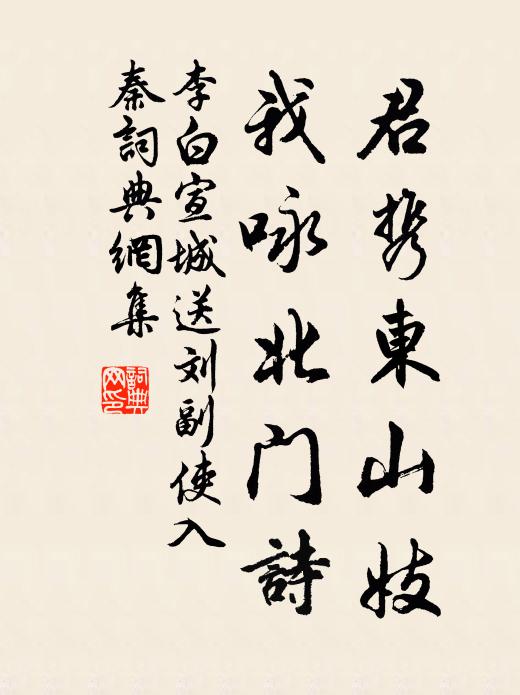 君携東山妓
我咏北门詩
李白宣城送刘副使入
秦詞典網集
詞典
网印